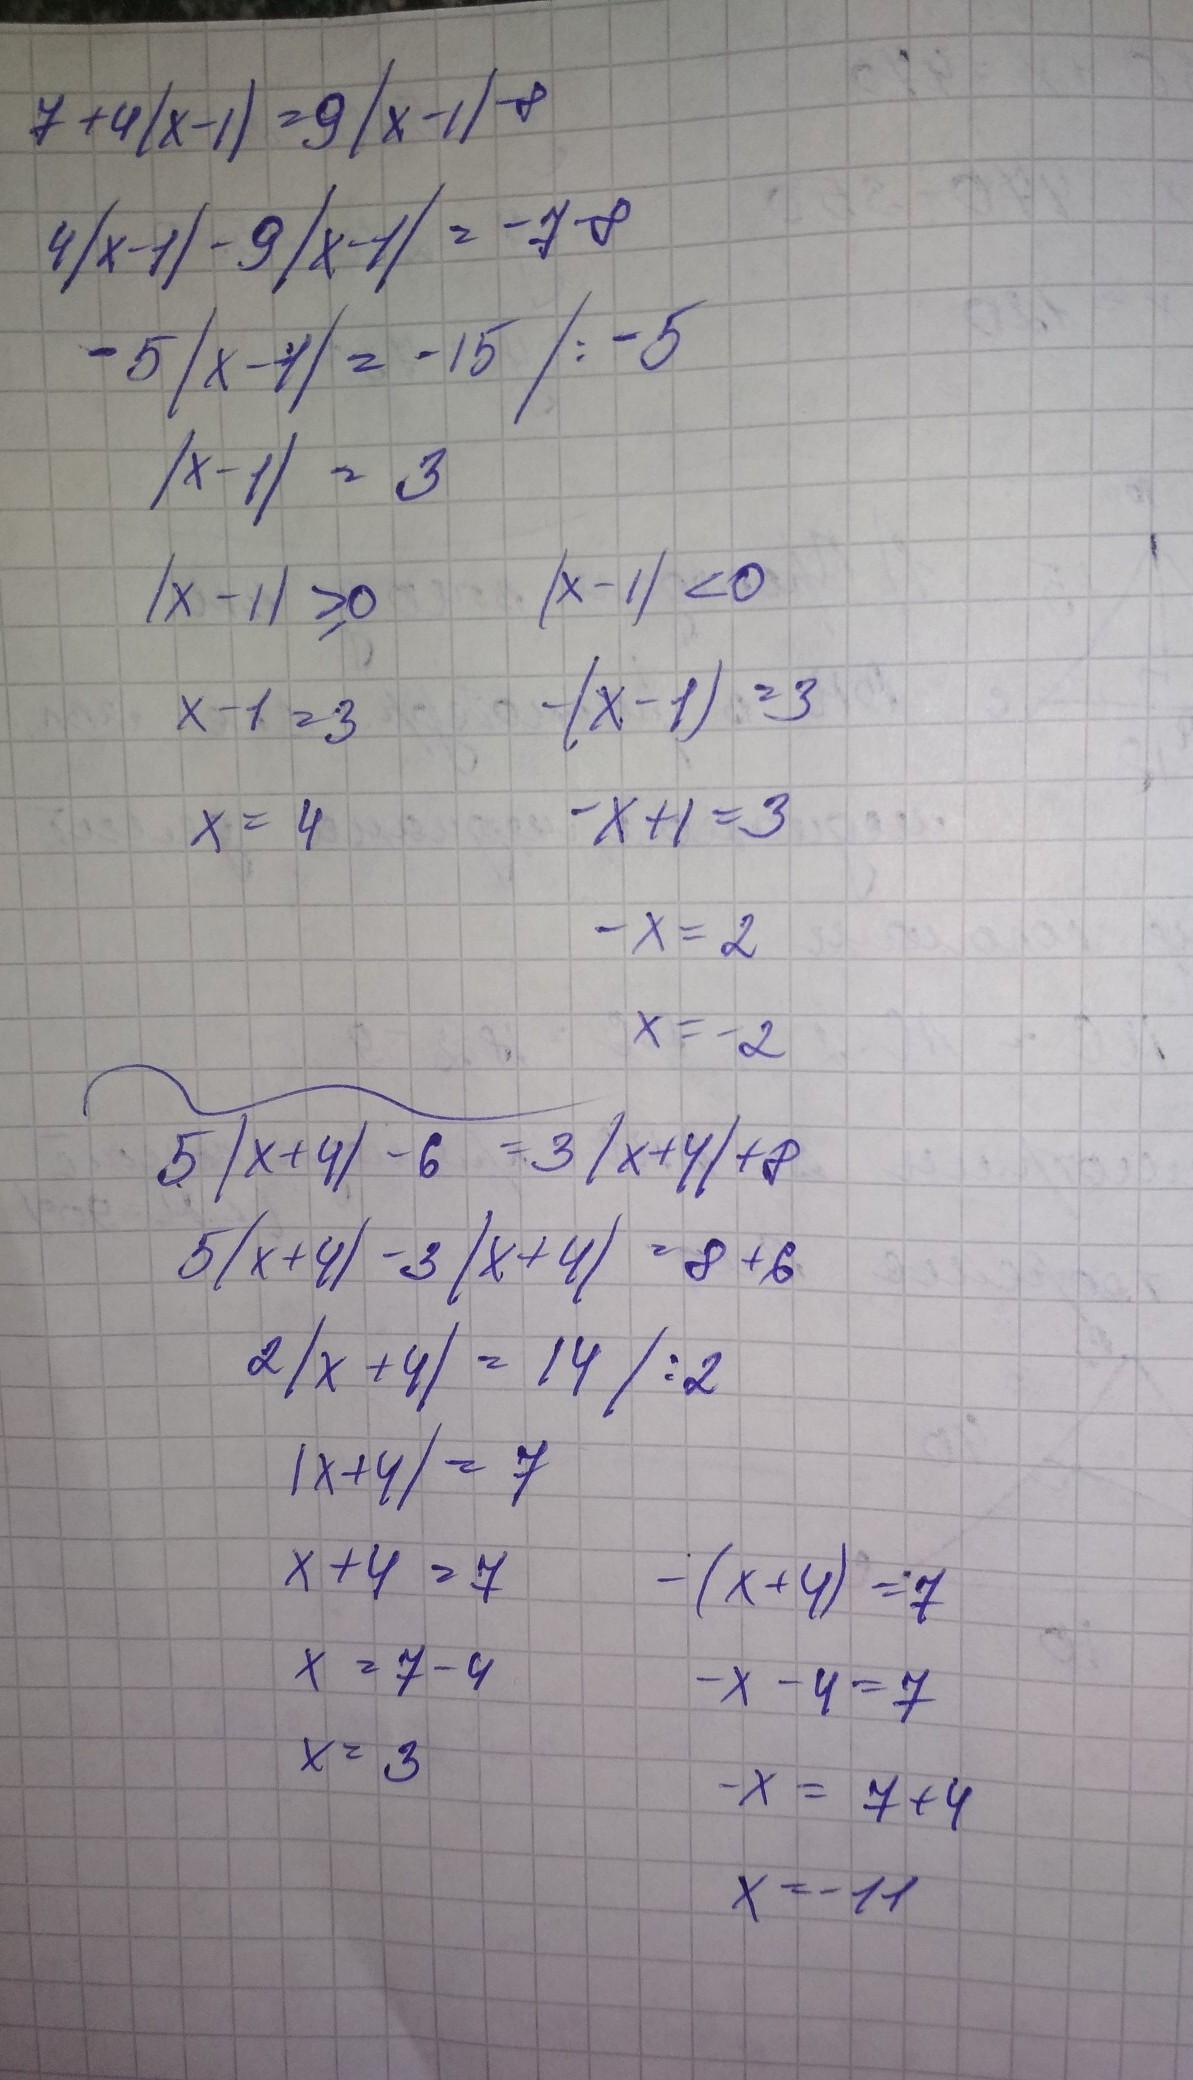 7+4|x-1|=9|x-1|-8
4|x-1|-9|x-1|=-7-8
-5|x-1|=-15 /:-5
|x-1|=3
|x-1|≥0 |x-1|<0
x-1=3 -(x-1)=3
x=4 -x+1=3
-x=2
x=-2
5|x+4|-6=3|x+4|+8
5|x+4|-3|x+4|=8+6
2|x+4|=14 /:2
|x+4|=7
x+4=7 -(x+4)=7
x=7-4 -x-4=7
x=3 -x=7+4
x=-11